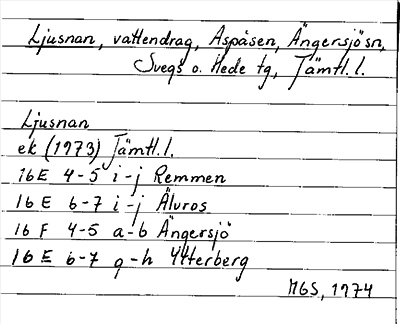 Ljusnan, vattendrag, Aspåsen, Ängersjö sn,
Svegs o. Hede tg, Jämtl. l.
Ljusnan
ek (1973) Jämtl. l.
16 E 4-5 i-j Remmen
16 E 6-7 i-j Älvros
16 F 4-5 a-b Ängersjö
16 E 6-7 g-h Ytterberg
MGS, 1974